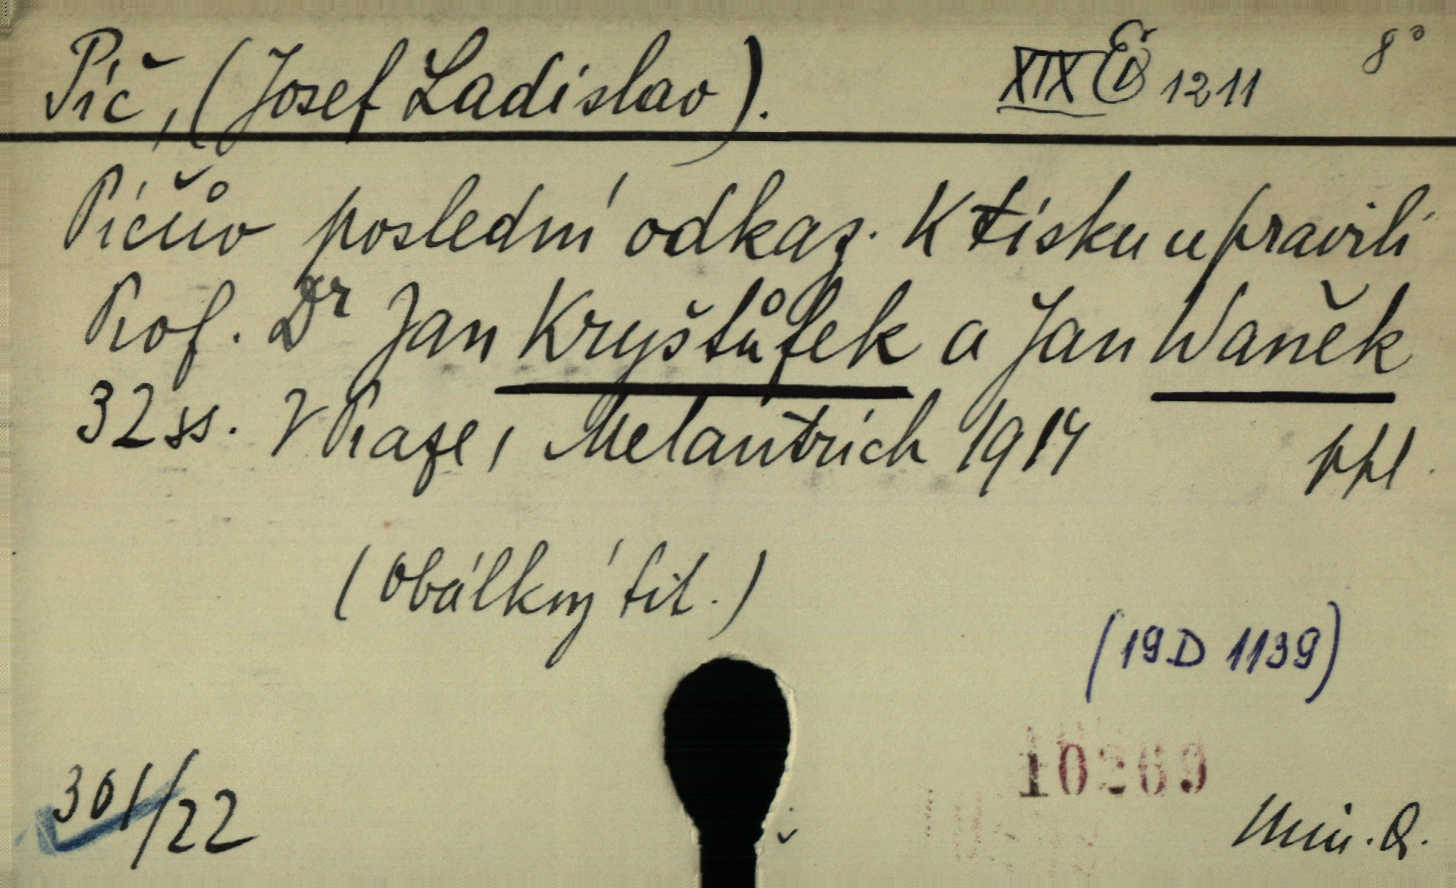 Píč, (Josef Ladislav). XIX E 1211 8°
Píčův poslední odkaz. K tisku upravili
Prof. Dr Jan Kryštůfek a Jan Waněk
32 ss. V Praze, Melantrich 1914 ppl.
(Obálkový tit.)
(19 D 1139)
10269
301/22